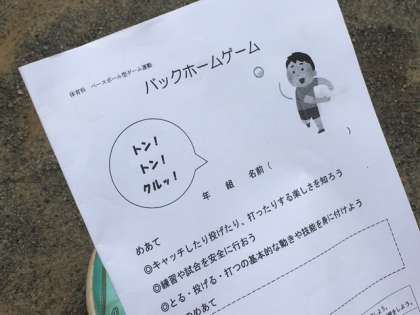 体育科 ベースボール型ゲーム運動
バックホームゲーム
トン!
トン!
クルッ!
年 組 名前( )
めあて
◎キャッチしたり投げたり、打ったりする楽しさを知ろう
◎練習や試合を安全に行おう
◎とる・投げる・打つの基本的な動きや技能を身に付けよう
のめあて